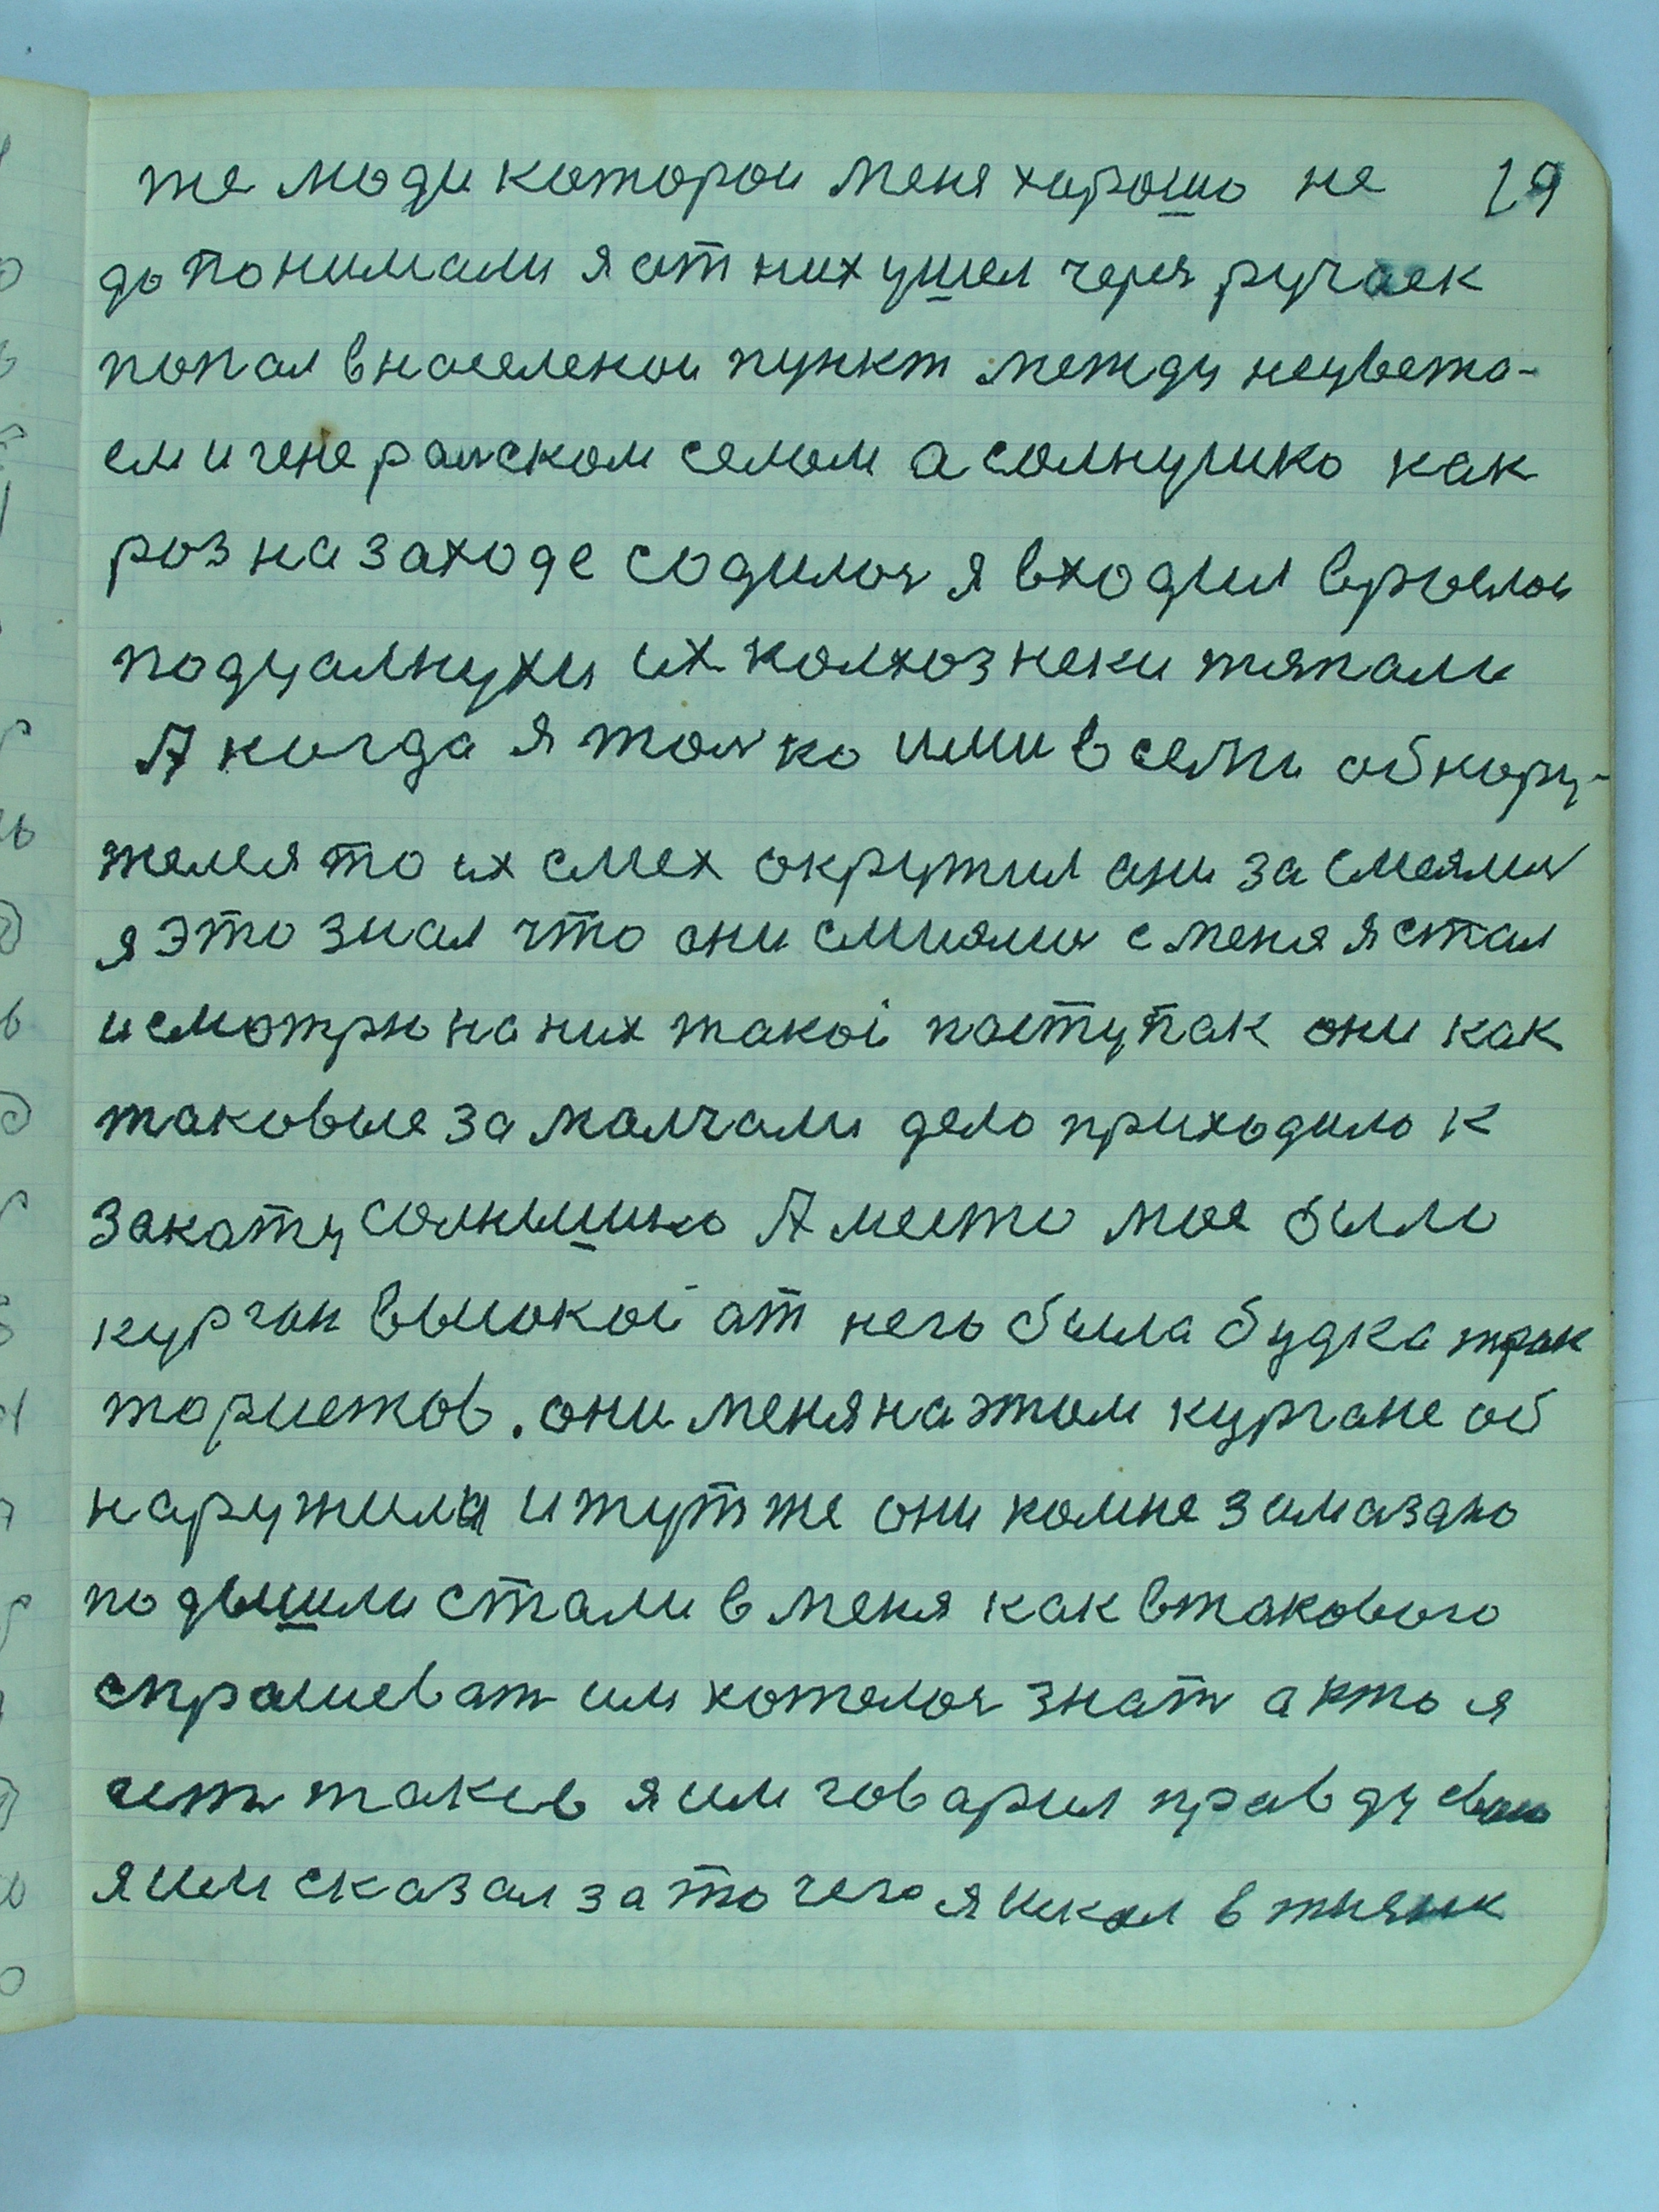 те люди которои меня хорошо не 19
до понимали я от них ушел через ручаек
попал в населенои пункт между неувета-
ем и генеральском селом а солнушко как
роз на заходе содилось я входил врослои
подцалнухи их колхозники тяпали
А когда я только ими всеми обнору-
желся то их смех окружил они засмеялись
я это знал что они смиялись с меня я стал
и смотрю на них такоі поступак они как
таковые замолчали дело приходило к
закату солнышко А место мое было
курган высокоі от него была будка трак
тористов. они меня на этом кургане об
наружила и тут же они комне зимаздно
подышили стали в меня как в такового
спрашеват им хотелось знать а кто я
есть такев я им говарил правду свою
я им сказал за то чего я искал в